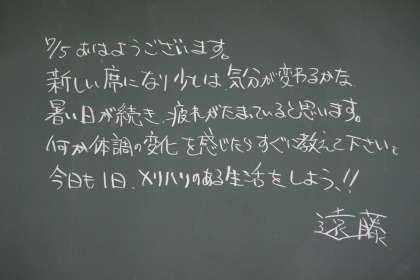 7/5 おはようございます。
新しい席になり少しは気分が変わるかな
暑い日が続き、疲れがたまっていると思います。
何か体調の変化を感じたらすぐに教えて下さい。
今日も1日、メリハリのある生活をしよう!!
遠藤